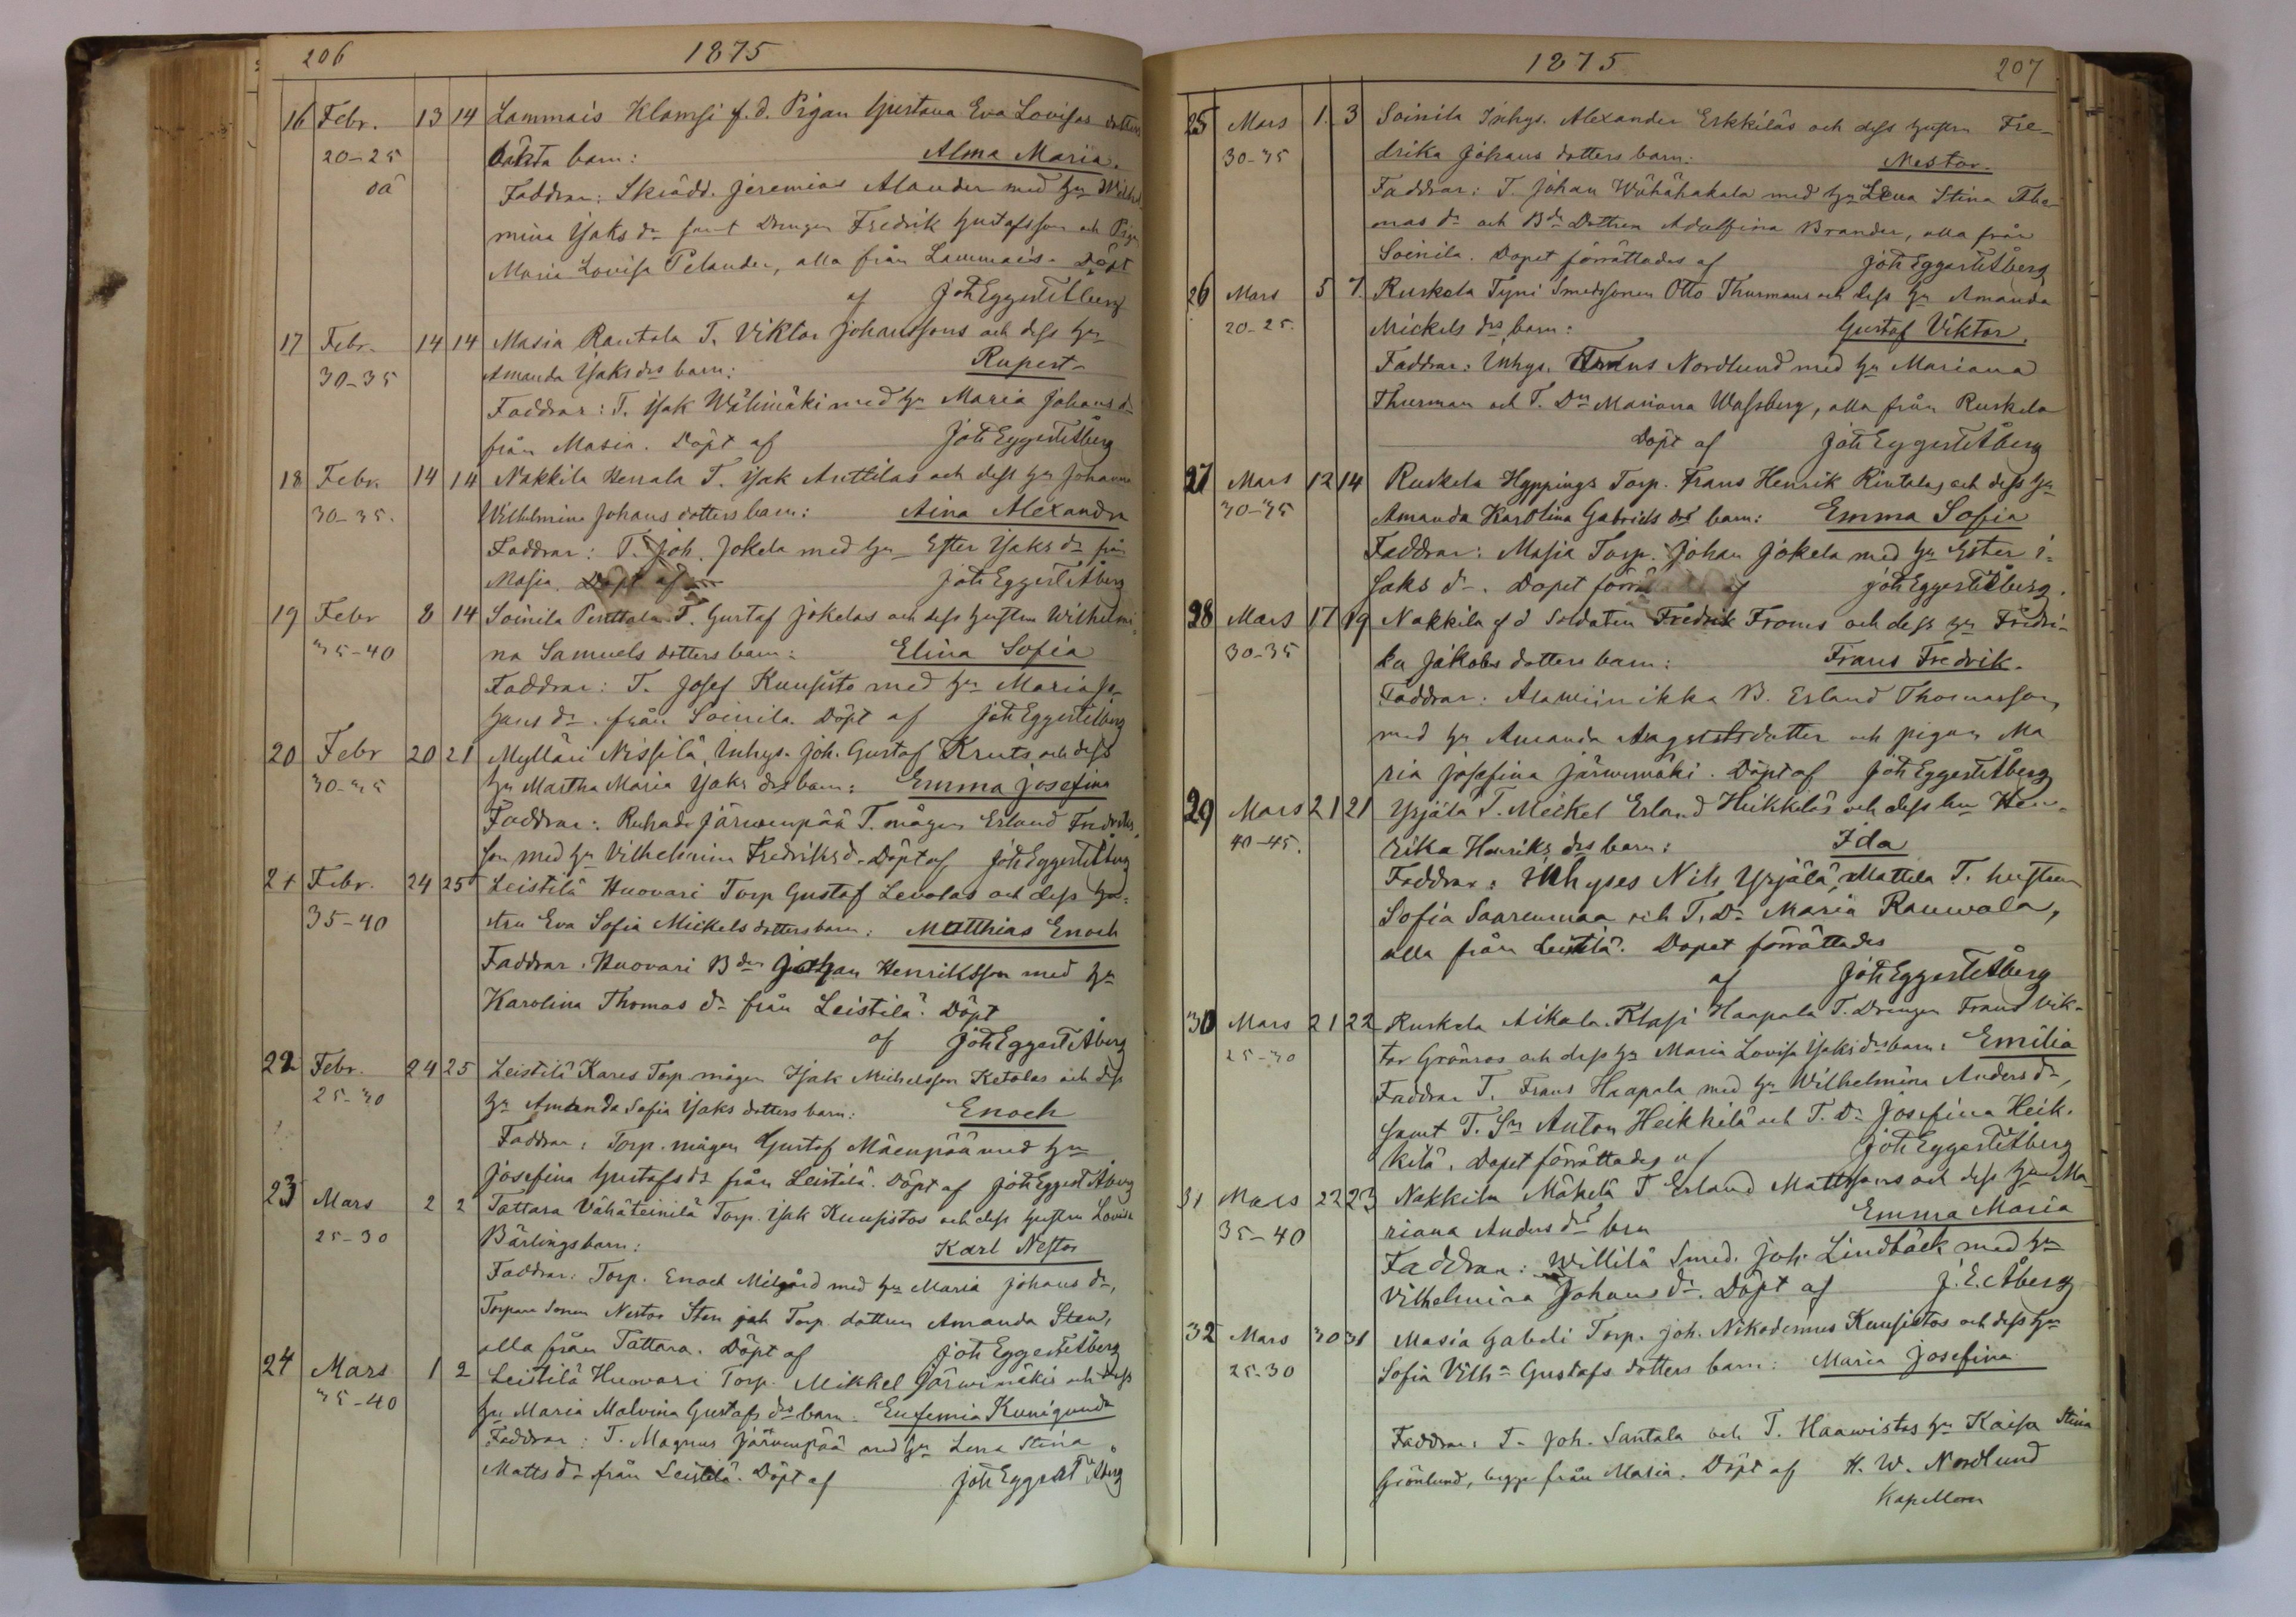 206
1875
16 Febr. 13 14 Lammais Klamsi f.d. Pigan Gustava Eva Lovisas dotters
20-25 oäkta barn: Alma Maria.
oä Faddrar: Skrädd. Jeremias Alander med hu
mina Isaks dr samt Drengen Fredrik Gustafsson och Pigan
Maria Lovisa Pelander, alla från Lammais. Döpt
af Joh Eggert Åberg
17 Febr. 14 14 Masia Rantala T. Viktor Johanssons och dess hu
30-35 Amanda Isaks drs barn: Rupert
Faddrar: T. Isak Wälimäki med hu Maria Johans dr
från Masia. Döpt af Joh Eggert Åberg
18 Febr. 14 14 Nakkila Herrala T. Isak Anttilas och dess hu Johanna
30-35. Wilhelmina Johans dotters barn: Aina Alexandra
Faddrar: T. Joh. Jokela med hu Ester Isaks dr från
Masia. Döpt af Joh Eggert Åberg
19 Febr 8 14 Soinila Penttala T. Gustaf Jokelas och dess hustru Wilhelmi-
35-40 na Samuels dotters barn: Elina Sofia
Faddrar: T. Josef Kuusisto med hu Maria Jo-
hans dr från Soinila. Döpt af Joh Eggert Åberg
20 Febr 20 21 Mylläri Nissilä, Inhys. Joh. Gustaf Kruts och dess
30-35 hu Martha Maria Isaks drs barn: Emma Josefina
Faddrar: Ruhade Järwenpää T. mågen Erland Fredriks-
son med hu Vilhelmina Fredriks d. Döpt af Joh Eggert Åberg
21 Febr. 24 25 Leistilä Huovari Torp Gustaf Levolas och dess hu-
35-40 stru Eva Sofia Mickels dotters barn: Matthias Enoch
Faddrar: Huovari Bden Johan Henriksson med hu
Karolina Thomas dr från Leistilä. Döpt
af Joh Eggert Åberg
22 Febr. 24 25 Leistilä Kares Torp. mågen Isak Michelsson Ketolas och dess
25-30 hu Amanda Sofia Isaks dotters barn: Enoch
Faddrar: Torp. mågen Gustaf Mäenpää med hu
Josefina Gustafs dr från Leistilä. Döpt af Joh Eggert Åberg
23 Mars 2 2 Tattara Vähäteinilä Torp. Isak Kuusistos och dess hustru Lovisa
25-30 Bärlings barn: Karl Nestor
Faddrar: Torp. Enoch Milgård med hu Maria Johans dr,
Torpare Sonen Nestor Sten och Torp. dottren Amanda Sten,
alla från Tattara. Döpt af Joh Eggert Åberg
24 Mars 1 2 Leistilä Huovari Torp. Mikkel Järwimäkis och dess
35-40 hu Maria Malvina Gustafs drs barn: Eufemia Kunigunda
Faddrar: T. Magnus Järvenpää med hu Lena Stina
Matts dr från Leistilä. Döpt af Joh Eggert Åberg
1875
207
25 Mars 1. 3 Soinila Inhys. Alexander Erkkiläs och dess hustru Fre-
30-35 drika Johans dotters barn: Nestor.
Faddrar: T. Johan Wähähakala med hu Lena Stina Tho-
mas dr och Bde Dottren Adolfina Brander, alla från
Soinila. Dopet förrättades af Joh Eggert Åberg
26 Mars 5 7. Ruskela Tyni Smedssonen Otto Thurmans och dess hu Amanda
20-25. Mickels drs barn: Gustaf Viktor.
Faddrar: Inhys. Frans Nordlund med hu Mariana
Thurman och T. Dn Mariana Wassberg, alla från Ruskela
Döpt af Joh Eggert Åberg
27 Mars 12 14 Ruskela Hyppings Torp. Frans Henrik Rintalas och dess hu
30-35 Amanda Karolina Gabriels drs barn: Emma Sofia
Faddrar: Masia Torp. Johan Jokela med hu Ester I-
saks dr. Dopet förrä af Joh Eggert Åberg.
28 Mars 17 19 Nakkila f d Soldaten Fredrik Froms och dess hu Fredri-
30-35 ka Jakobs dotters barn: Frans Fredrik.
Faddrar: Alawiinikka B. Erland Thomasson,
med hu Amanda Augustsdotter och pigan Ma
ria Josefina Järwimäki. Döpt af Joh Eggert Åberg
29 Mars 21 21 Yrjälä T. Mickel Erland Heikkiläs och dess hu Hen-
40-45. rika Henriks drs barn: Ida
Faddrar: Inhyses Nils Yrjälä, Mattila T. hustrun
Sofia Saarenmaa och T. Dr Maria Rauwola,
alla från Leistilä. Dopet förrättades
af Joh Eggert Åberg
30 Mars 21 22 Ruskela Aikala Klasi Haapala T. Drengen Frans Vik-
25-30 tor Grönros och dess hu Maria Lovisa Isaks drs barn: Emilia
Faddrar T. Frans Haapala med hu Wilhelmina Anders dr,
samt T. Sn Anton Heikkilä och T. Dr Josefina Heik-
kilä. Dopet förrättades af Joh Eggert Åberg
31 Mars 22 23 Nakkila Mäkelä T Erland Mattssons och dess hu Ma-
35-40 riana Anders drs brn Emma Maria
Faddrar: Willilä Smed. Joh. Lindbäck med hu
Vilhelmina Johans dr. Döpt af J. E. Åberg
32 Mars 30 31 Masia Gabeli Torp. Joh. Nikodemus Kuusistos och dess hu
25-30 Sofia Vilh=a Gustafs dotters barn: Maria Josefina
Faddrar: T. Joh. Santala och T. Haawistos hu Kaisa Stina
Grönlund, begge från Masia. Döpt af H. W. Nordlund
Kapellan